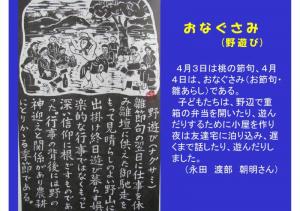 おなぐさみ
(野遊び)
４月３日は桃の節句、４月
４日は、おなぐさみ(お節句・
雛あらし)である。
子どもたちは、野辺で重
箱の弁当を開いたり、遊ん
だりするために小屋を作り
夜は友達宅に泊り込み、遅
くまで話したり、遊んだりし
ました。
(永田　渡部　朝明さん)
野遊び(ナグサミ)
雛節句の翌日は仕事を休
み雛壇に供えた御馳走を
もって見晴らしのよい野山に
出掛け終日遊び暮らす娯
楽的な行事ではなくもっと
深い信仰に根ざすものであ
った行事の背後には野の
神迎えと関係があり農耕
にとりかかる季節である。